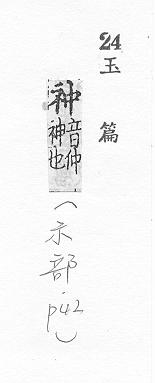 24 玉篇
祌
音仲
神也
(示部·p42)